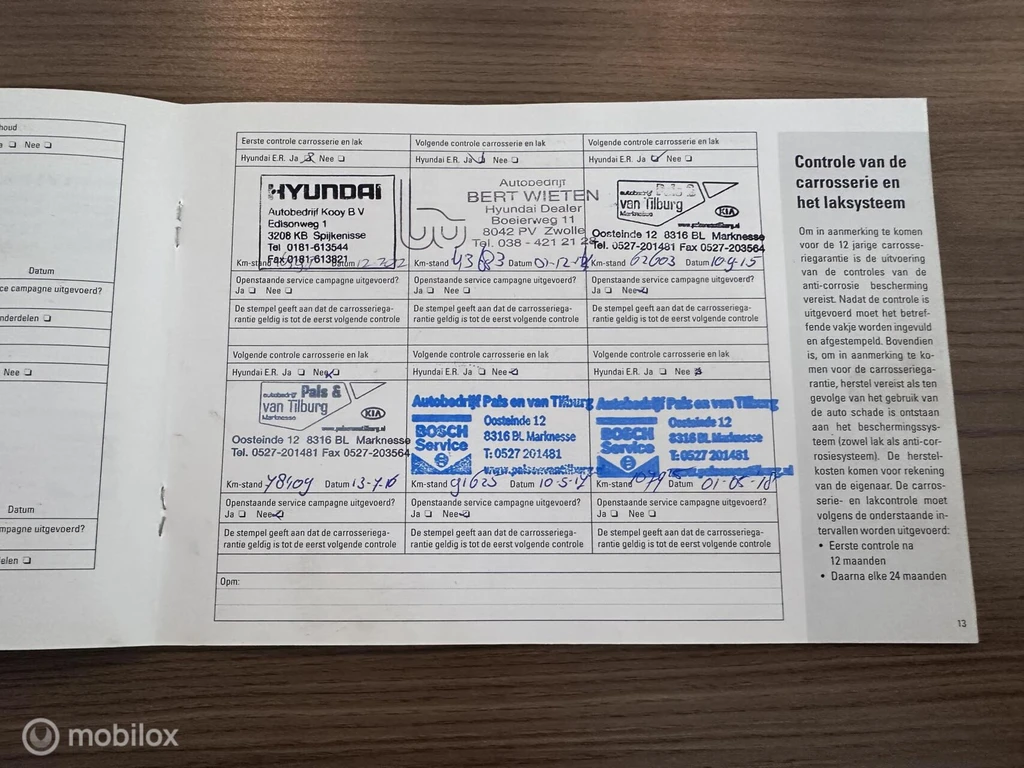 houd
a ❏ Nee ❏
Datum
ce campagne uitgevoerd?
nderdelen ❏
Nee ❏
Datum
mpagne uitgevoerd?
elen ❏
Eerste controle carrosserie en lak
Hyundai E.R. Ja Nee ❏
HYUNDAI
Autobedrijf Kooy B V
Edisonweg 1
3208 KB Spijkenisse
Tel 0181-613544
Fax 0181-613821
Km-stand Datum
Openstaande service campagne uitgevoerd?
Ja ❏ Nee ❏
De stempel geeft aan dat de carrosseriega-
rantie geldig is tot de eerst volgende controle
Volgende controle carrosserie en lak
Hyundai E.R. Ja Nee ❏
Autobedrijf
BERT WIETEN
Hyundai Dealer
Boeierweg 11
8042 PV Zwolle
Tel. 038 - 421 21 2
Km-stand Datum 01-12-
Openstaande service campagne uitgevoerd?
Ja ❏ Nee ❏
De stempel geeft aan dat de carrosseriega-
rantie geldig is tot de eerst volgende controle
Volgende controle carrosserie en lak
Hyundai E.R. Ja Nee ❏
autobedrijf Pals &
van Tilburg
Marknesse
KIA
Oosteinde 12 8316 BL Marknesse
Tel. 0527-201481 Fax 0527-203564
Km-stand 62603 Datum 10-4-15
Openstaande service campagne uitgevoerd?
Ja ❏ Nee
De stempel geeft aan dat de carrosseriega-
rantie geldig is tot de eerst volgende controle
Volgende controle carrosserie en lak
Hyundai E.R. Ja ❏ Nee
autobedrijf Pals &
van Tilburg
Marknesse
KIA
Oosteinde 12 8316 BL Marknesse
Tel. 0527-201481 Fax 0527-203564
Km-stand 78409 Datum 13-7-16
Openstaande service campagne uitgevoerd?
Ja ❏ Nee
De stempel geeft aan dat de carrosseriega-
rantie geldig is tot de eerst volgende controle
Volgende controle carrosserie en lak
Hyundai E.R. Ja ❏ Nee
Autobedrijf Pals en van Tilburg
BOSCH
Service
Oosteinde 12
8316 BL Marknesse
T: 0527 201481
www.palsenvantilburg
Km-stand 91625 Datum 10-5-17
Openstaande service campagne uitgevoerd?
Ja ❏ Nee
De stempel geeft aan dat de carrosseriega-
rantie geldig is tot de eerst volgende controle
Volgende controle carrosserie en lak
Hyundai E.R. Ja ❏ Nee
Autobedrijf Pals en van Tilburg
BOSCH
Service
Oosteinde 12
8316 BL Marknesse
T: 0527 201481
www.palsenvantilburg.nl
Km-stand Datum 01-05-18
Openstaande service campagne uitgevoerd?
Ja ❏ Nee
De stempel geeft aan dat de carrosseriega-
rantie geldig is tot de eerst volgende controle
Opm:
Controle van de
carrosserie en
het laksysteem
Om in aanmerking te komen
voor de 12 jarige carrosse-
riegarantie is de uitvoering
van de controles van de
anti-corrosie bescherming
vereist. Nadat de controle is
uitgevoerd moet het betref-
fende vakje worden ingevuld
en afgestempeld. Bovendien
is, om in aanmerking te ko-
men voor de carrosseriega-
rantie, herstel vereist als ten
gevolge van het gebruik van
de auto schade is ontstaan
aan het beschermingssys-
teem (zowel lak als anti-cor-
rosiesysteem). De herstel-
kosten komen voor rekening
van de eigenaar. De carros-
serie- en lakcontrole moet
volgens de onderstaande in-
tervallen worden uitgevoerd:
• Eerste controle na
12 maanden
• Daarna elke 24 maanden
13
mobilox